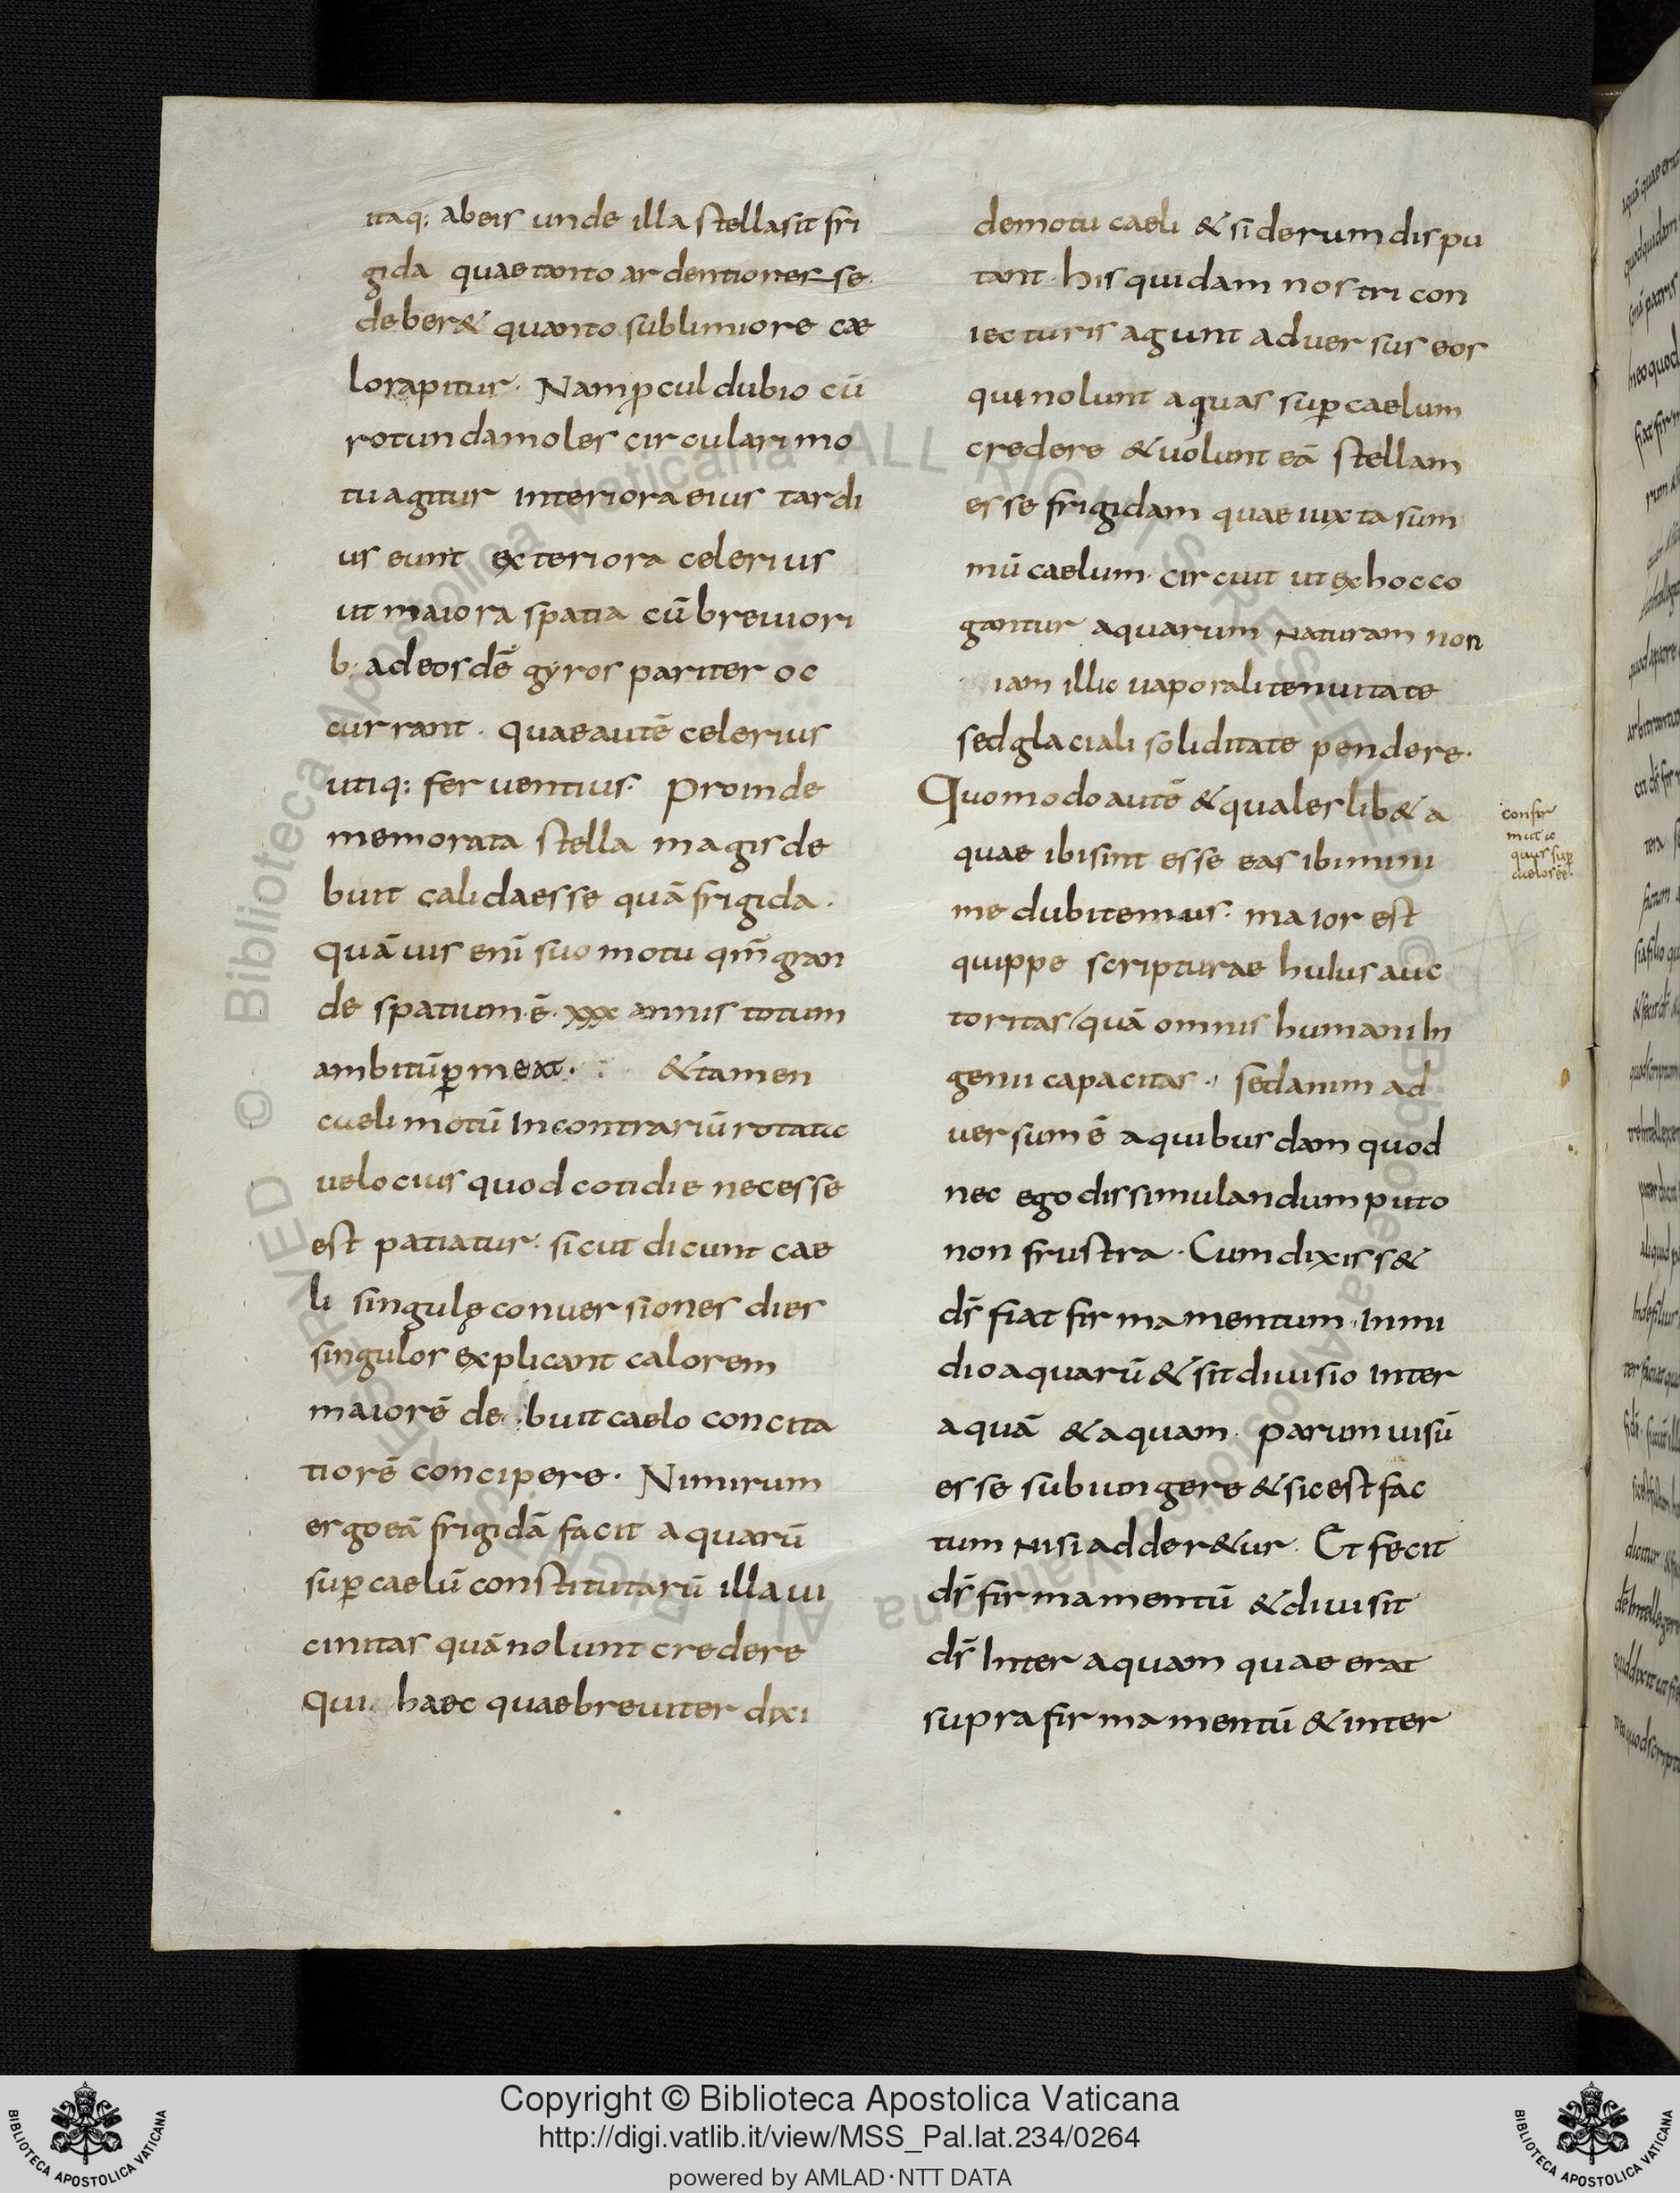 itaq: abeis unde illa stella sit fri
gida quae tanto ardentior esse
deber& quanto sublimiore cae
lo rapitur. Nam ꝓcul dubio cū
rotunda moles circulari mo
tu agitur interiora eius tardi
us eunt exteriora celerius
ut maiora spatia cū breviori
b: ad eosdē gyros pariter oc
currant. quae autē celerius
utiq: ferventius. Proinde
memorata stella magis de
buit calida esse quā frigida.
quāvis enī suo motu qm̄ gran
de spatium ē. xxx annis totum
ambitū ꝑmeat. &tamen
caeli motū In contrariū rotata
velocius quod cotidie necesse
est patiatur. sicut dicunt cae
li singulę conversiones dies
singulos explicant calorem
maiorē debuit caelo concita
tiorē concipere. Nimirum
ergo eā frigidā facit aquarū
suꝑ caelū constitutarū illa vi
cinitas quā nolunt credere
qui haec quae breviter dixi
de motu caeli & siderum dispu
tant. his quidam nostri con
iecturis agunt adversus eos
qui nolunt aquas suꝑ caelum
credere & volunt eā stellam
esse frigidam quae iuxta sum
mū caelum circuit ut ex hoc co
gantur aquarum Naturam non
iam illic vaporali tenuitate
sed glaciali soliditate pendere.
Quomodo autē & quales lib& a
quae ibi sint esse eas ibi mini
me dubitemus. maior est
quippe scripturae huius auc
toritas quā omnis humani In
genii capacitas. sed anim ad
versum ē a quibusdam quod
nec ego dissimulandum puto
non frustra. Cum dixiss&
dr̄ fiat firmamentum In mi
dio aquarū & sit divisio inter
aquā & aquam. parum visū
esse subiungere & sic est fac
tum Nisi adder&ur. Et fecit
dr̄ firmamentū & divisit
dr̄ Inter aquam quae erat
supra firmamentū & inter
confir
mat a
quas suꝑ
caelos eē
© Biblioteca Apostolica Vaticana ALL RIGHTS RESERVED
Copyright © Biblioteca Apostolica Vaticana
http://digi.vatlib.it/view/MSS_Pal.lat.234/0264
powered by AMLAD・NTT DATA
BIBLIOTECA APOSTOLICA VATICANA
BIBLIOTECA APOSTOLICA VATICANA